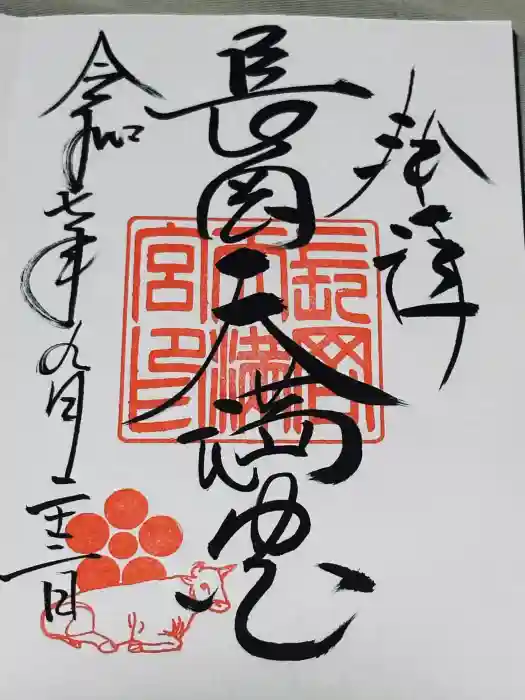 奉拝
長岡天満宮
令和七年九月二十二日
長岡
天満
宮印